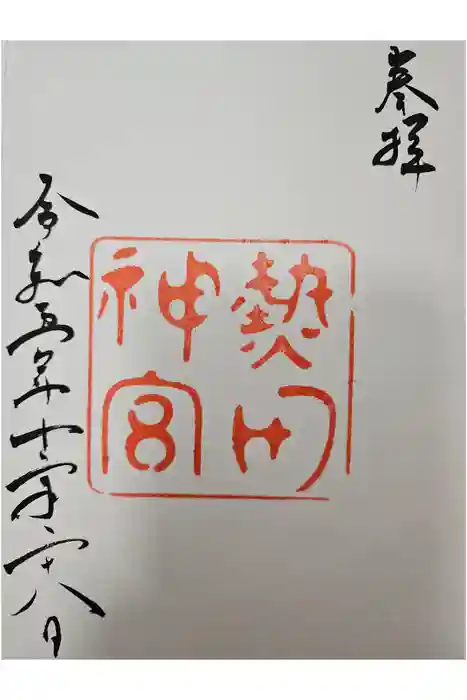 奉拝
熱田
神宮
令和五年十二月二十八日